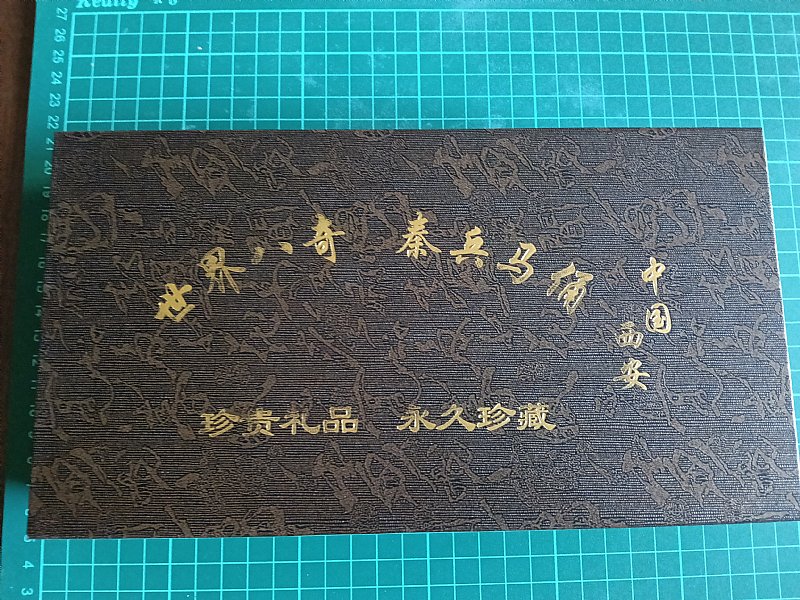 世界八奇 秦兵马俑
中国
西安
珍贵礼品 永久珍藏
27 26 25 24 23 22 21 20 19 18 17 16 15 14 13 12 11 10 9 8 7 6 5 4 3